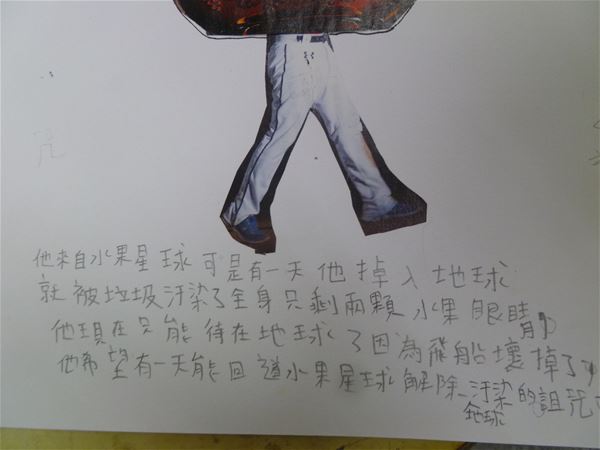 他來自水果星球可是有一天他掉入地球
就被垃圾汙染了全身只剩兩顆水果眼睛
他現在只能待在地球了因為飛船壞掉了
他希望有一天能回道水果星球解除汙染的詛咒
地球